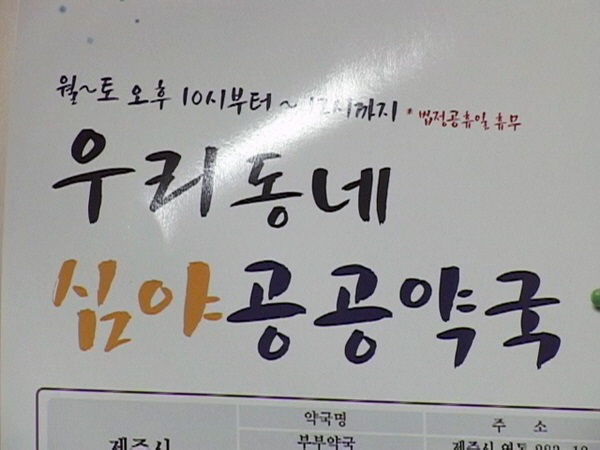 월~토 오후 10시부터 ~ 12시까지 * 법정공휴일 휴무
우리동네
심야공공약국
약국명 주 소
제주시 부부약국 제주시 연동